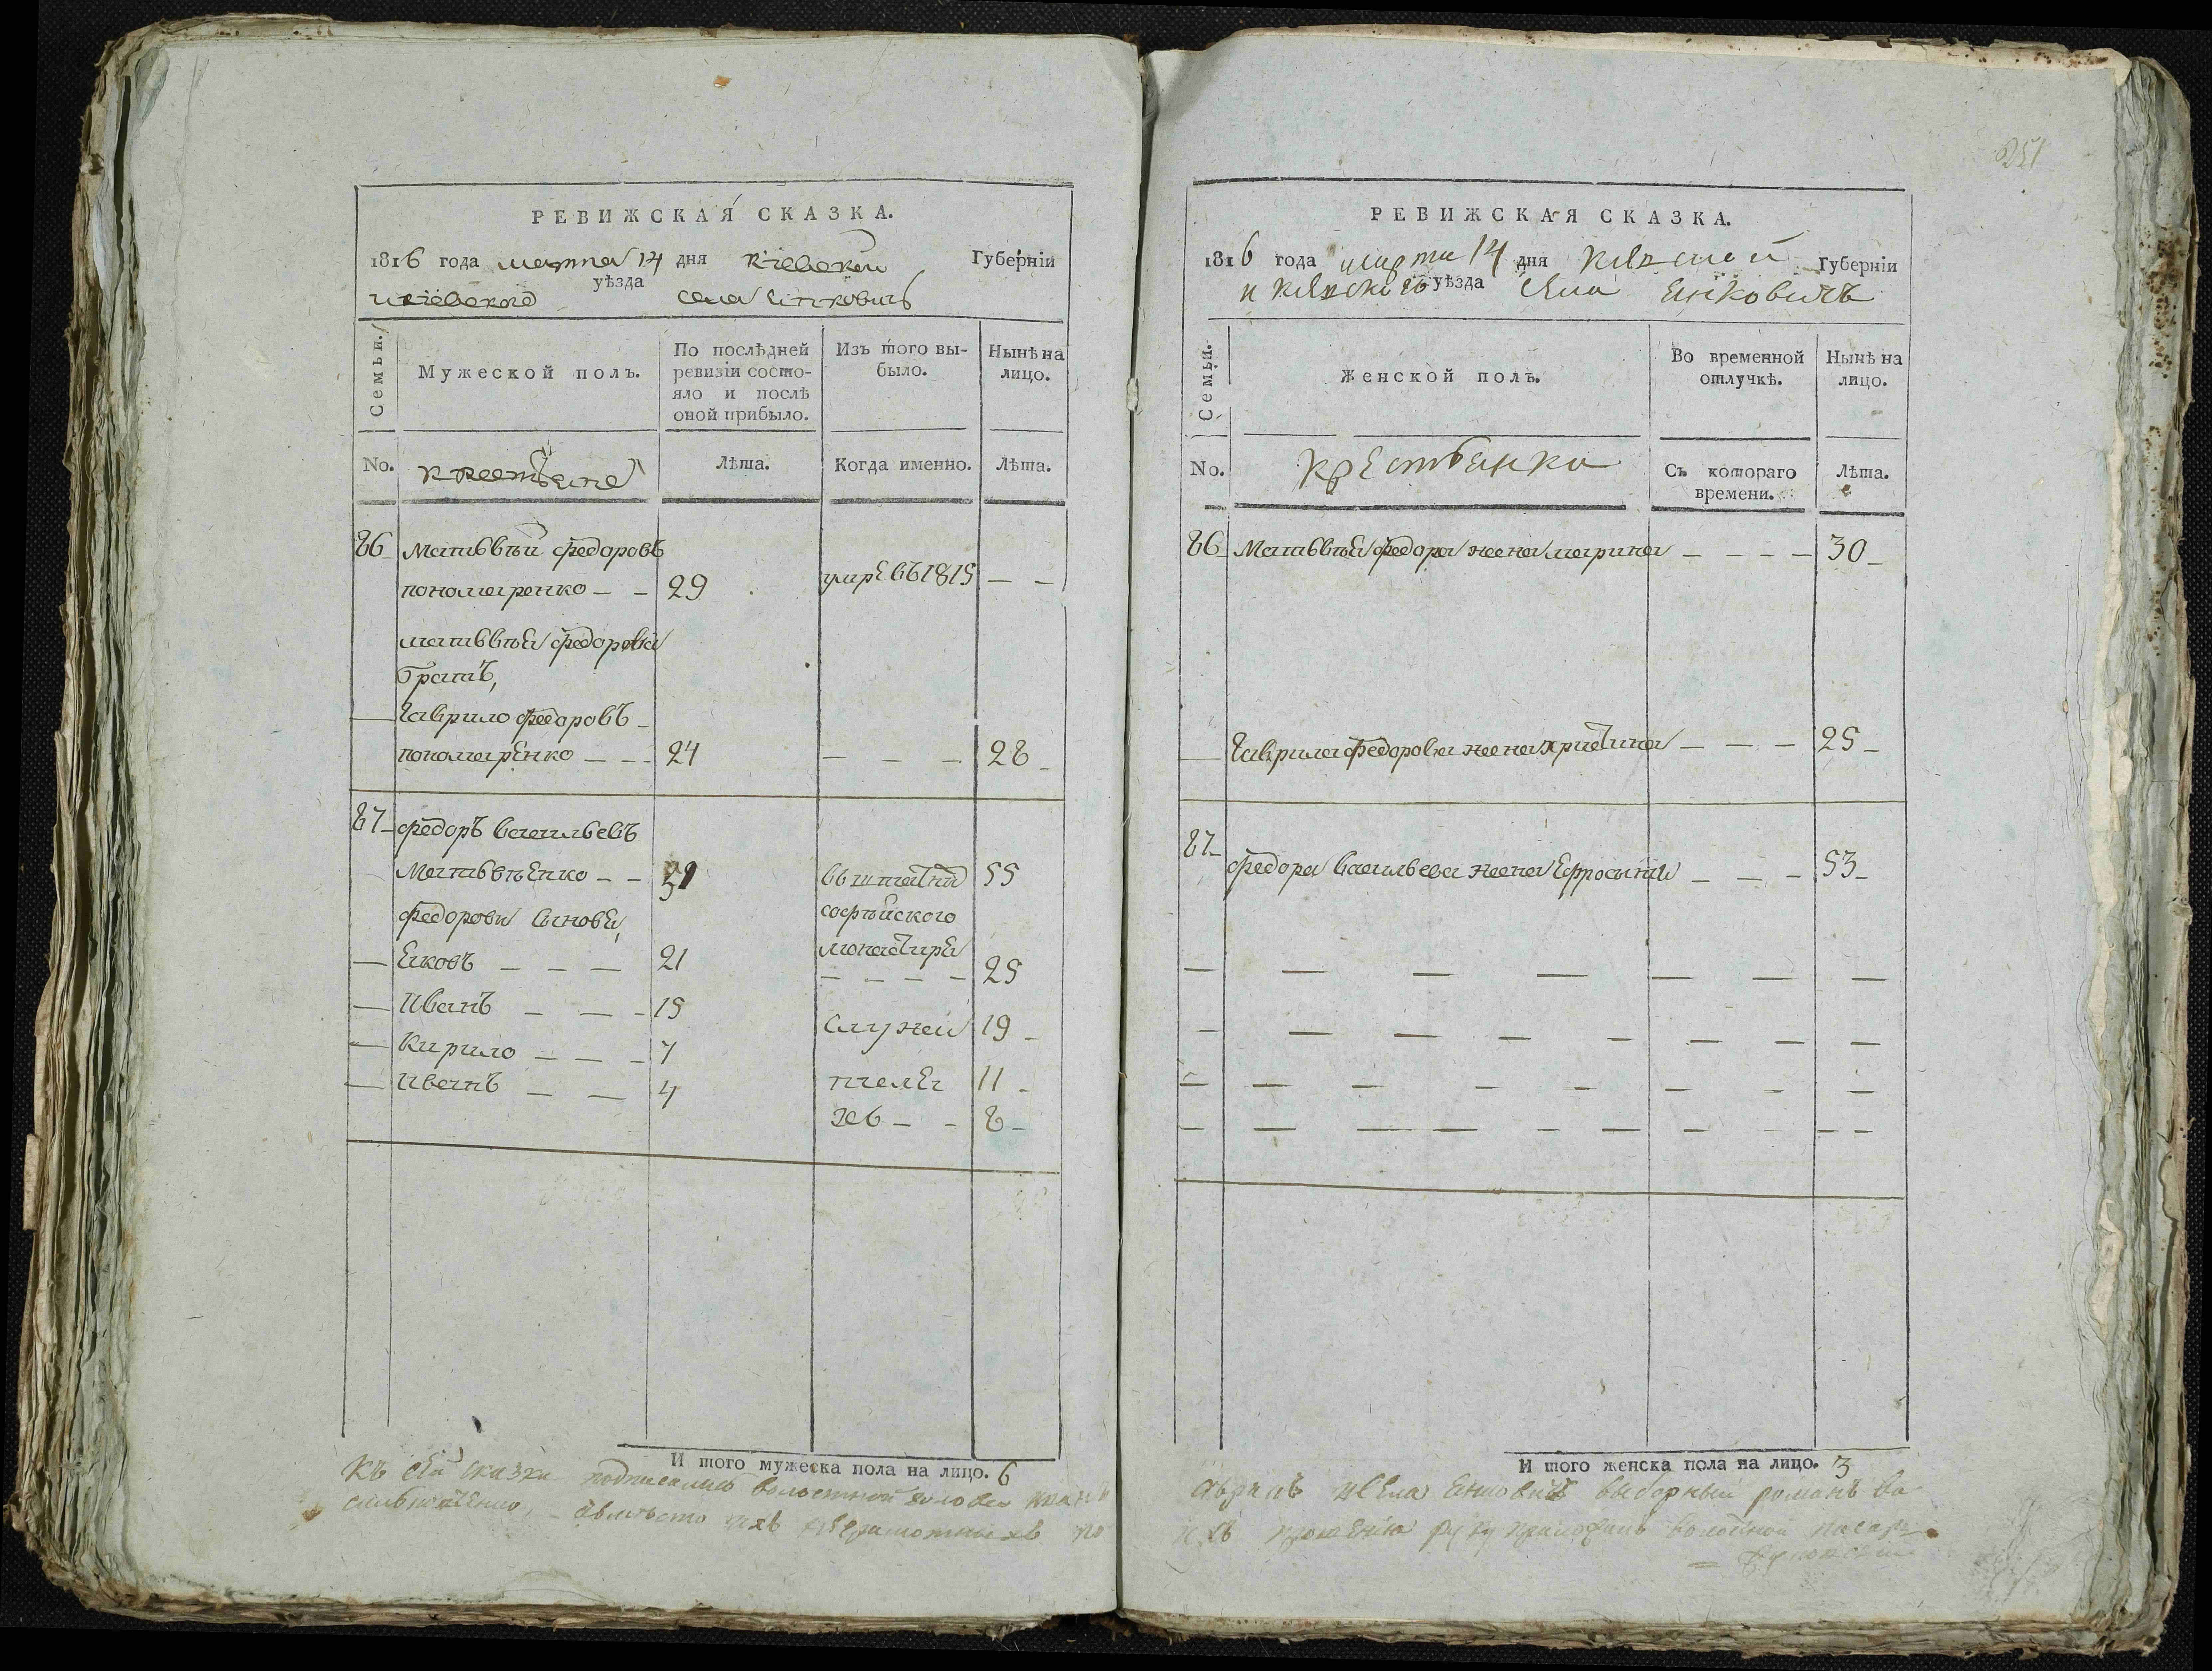 РЕВИЖСКАЯ СКАЗКА.
1816 года марта 14 дня Кіевской Губерніи
и кіевского уѣзда села Янковичь
Семьи.
Мужеской полъ.
По послѣдней ревизіи состояло и послѣ оной прибыло.
Изъ того выбыло.
Нынѣ на лицо.
No. крестьяне
Лѣта.
Когда именно.
Лѣта.
86 Матвѣй федоровъ
пономаренко — — 29 умре въ 1815 — —
матвѣя федорова
братъ,
— Гаврило федоровъ —
пономаренко — — — 24 — — — 28 —
87 — федоръ васильевъ
Матвѣенко — — 51 въ штатнй 55
федоровы сыновя, софѣйского
— Яковъ — — — 21 монастиря
— — — — 25
— Иванъ — — — 15 служи 19 —
— Кирило — — — 7 тыля 11 —
— Иванъ — — 4 хъ — — 8 —
И того мужеска пола на лицо. 6
Къ сей сказки подписались волостной голова
вмѣсто ихъ неграмотныхъ по
251
РЕВИЖСКАЯ СКАЗКА.
1816 года марта 14 дня Кіевской Губерніи
и Кіевского уѣзда села Янковичь
Семьи.
Женской полъ.
Во временной отлучкѣ.
Нынѣ на лицо.
No. крестьянки
Съ котораго времени.
Лѣта.
86 Матвѣя федора жена марина — — — — 30 —
— Гаврила федорова жена христина — — — 25 —
87 —
федора васильева жена Ефросинія — — — 53 —
— — — — — — —
— — — — — — — —
— — — — — — — —
— — — — — — — — — —
И того женска пола на лицо. 3
села Янковичь выборный романъ
ихъ прошенію руку приложилъ волостной писарь